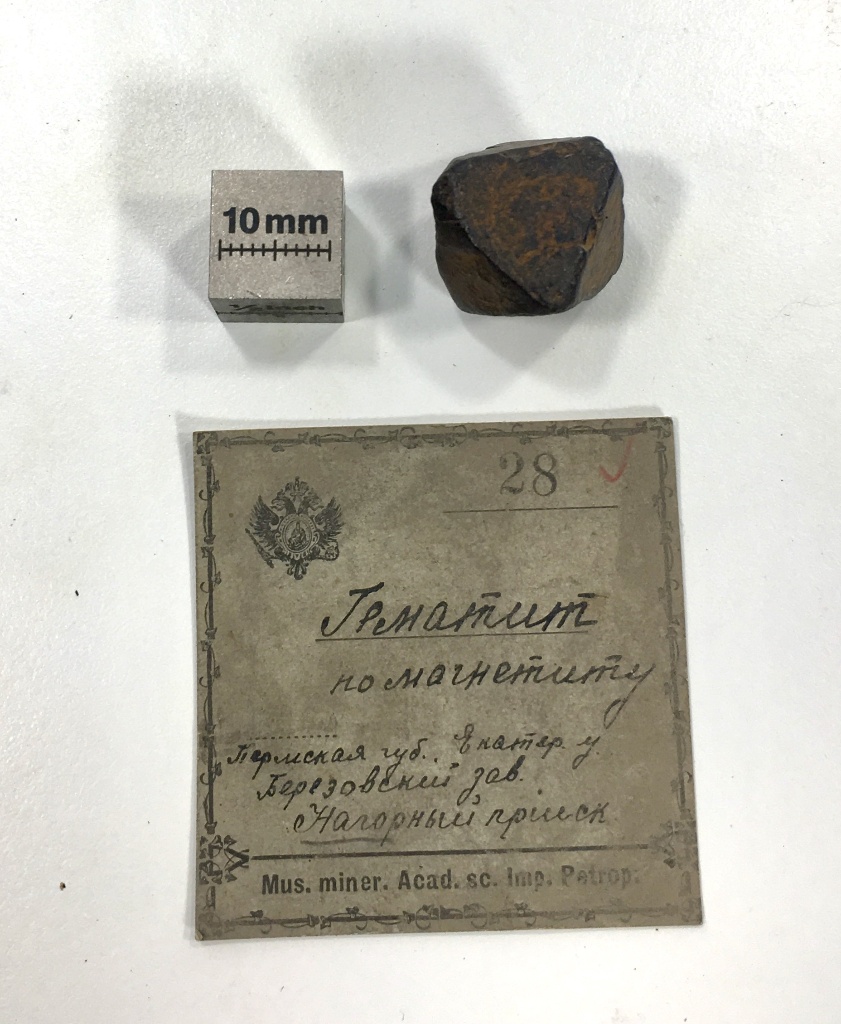 10 mm
28
Гематит
по магнетиту
Пермская губ., Екатер. у.
Березовский зав.
Нагорный прiиск
Mus. miner. Acad. sc. Imp. Petrop.